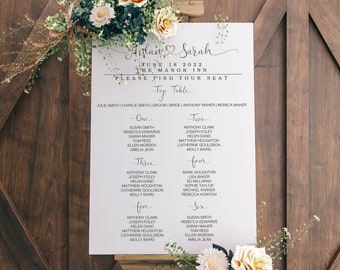 Sarah
JUNE 18 2022
THE MANOR INN
PLEASE FIND YOUR SEAT
Top Table
JULIE SMITH | CHARLIE SMITH | GROOM | BRIDE | ANTHONY MAHER | MONICA MAHER
One
SUSAN SMITH
REBECCA EDWARDS
SARAH DAY
TOM REES
ELLEN WORDEN
AMELIA JEAN
Two
ANTHONY CLARK
JOSEPH FOLEY
HELEN DAND
MATTHEW HOUGHTON
CATHERINE GOULDBON
MOLLY BAIRD
Three
ANTHONY CLARK
JOSEPH FOLEY
HELEN DAND
MATTHEW HOUGHTON
CATHERINE GOULDBON
MOLLY BAIRD
Four
MARK HOUGHTON
LISA BAKER
ED MILLARAN
SOPHIE TAYLOR
MICHAEL PARKER
ROWENA HATTON
Five
ANTHONY CLARK
JOSEPH FOLEY
HELEN DAND
MATTHEW HOUGHTON
CATHERINE GOULDBON
MOLLY BAIRD
Six
SUSAN SMITH
REBECCA EDWARDS
SARAH DAY
TOM REES
ELLEN WORDEN
AMELIA JEAN